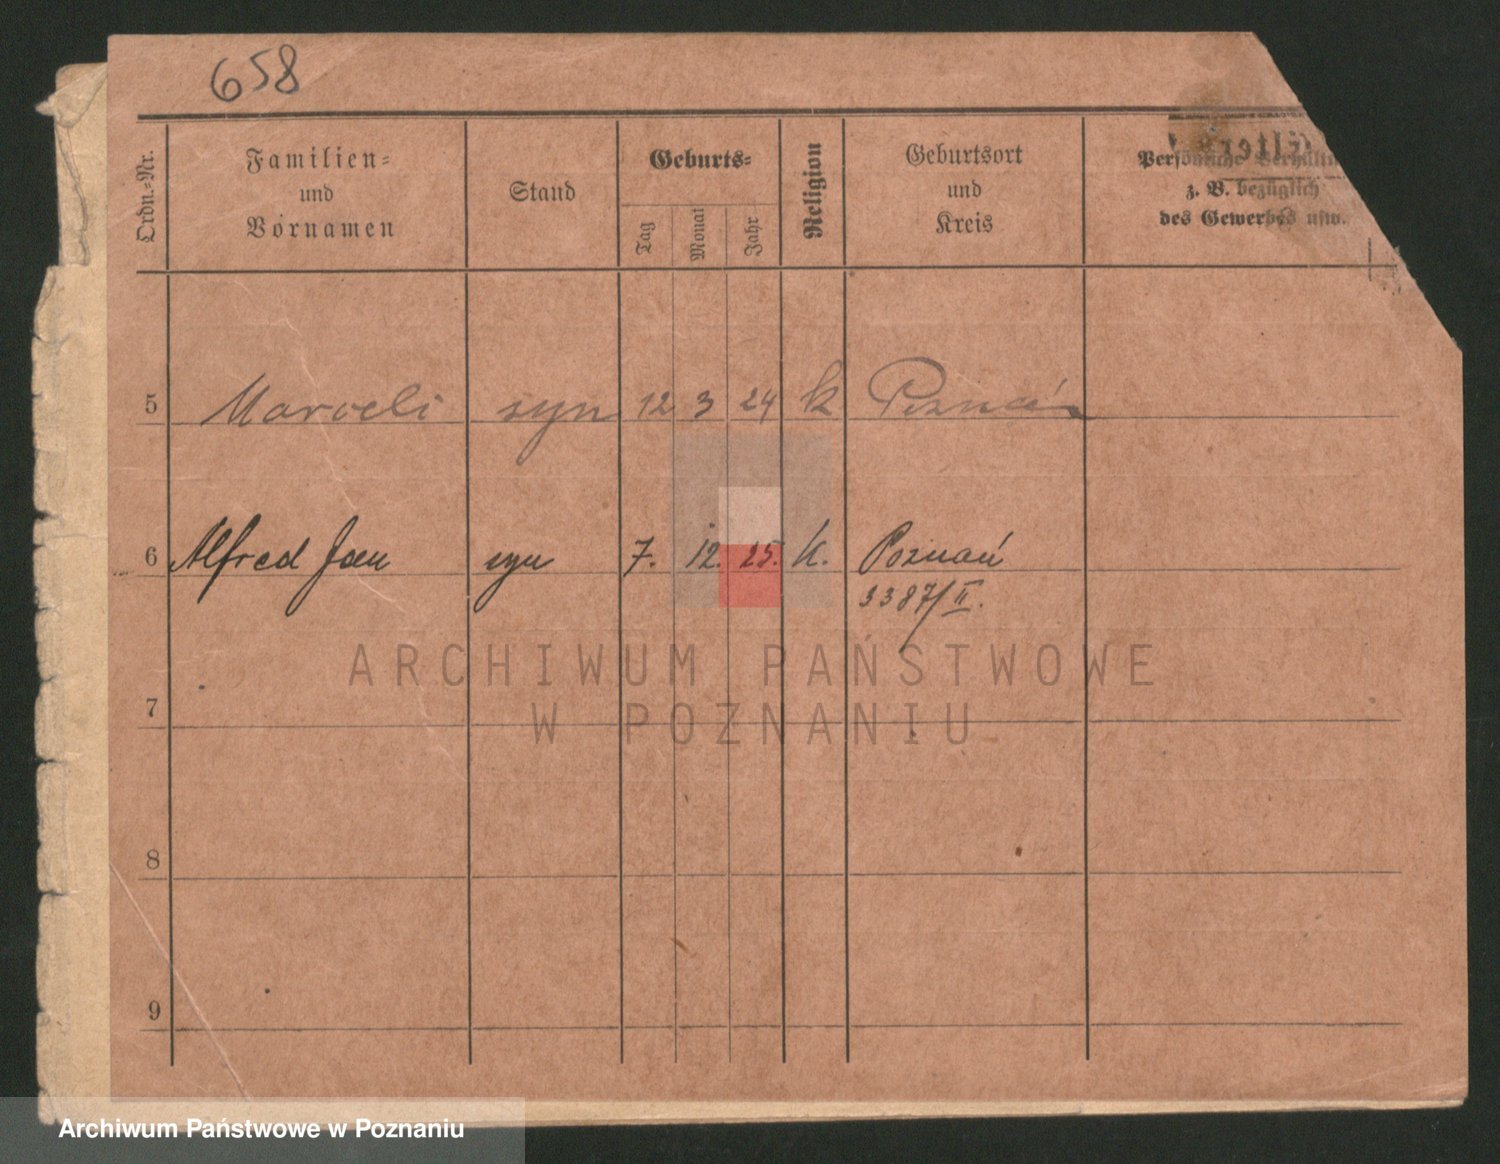 658
Ordn.-Nr.
Familien-
und
Vornamen
Stand
Geburts-
Tag
Monat
Jahr
Religion
Geburtsort
und
Kreis
Persönliche
z. B. bezüglich
des Gewerbes usw.
5 Marceli syn 12 3 24 k Poznań
6 Alfred Jan syn 7. 12. 25. k. Poznań
3387/II.
7
8
9
ARCHIWUM PAŃSTWOWE
W POZNANIU
Archiwum Państwowe w Poznaniu